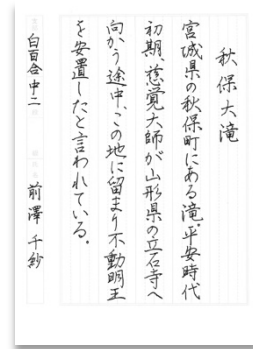 秋保大滝
宮城県の秋保町にある滝。平安時代
初期、慈覚大師が山形県の立石寺へ
向かう途中、この地に留まり不動明王
を安置したと言われている。
白百合中二
前澤千紗